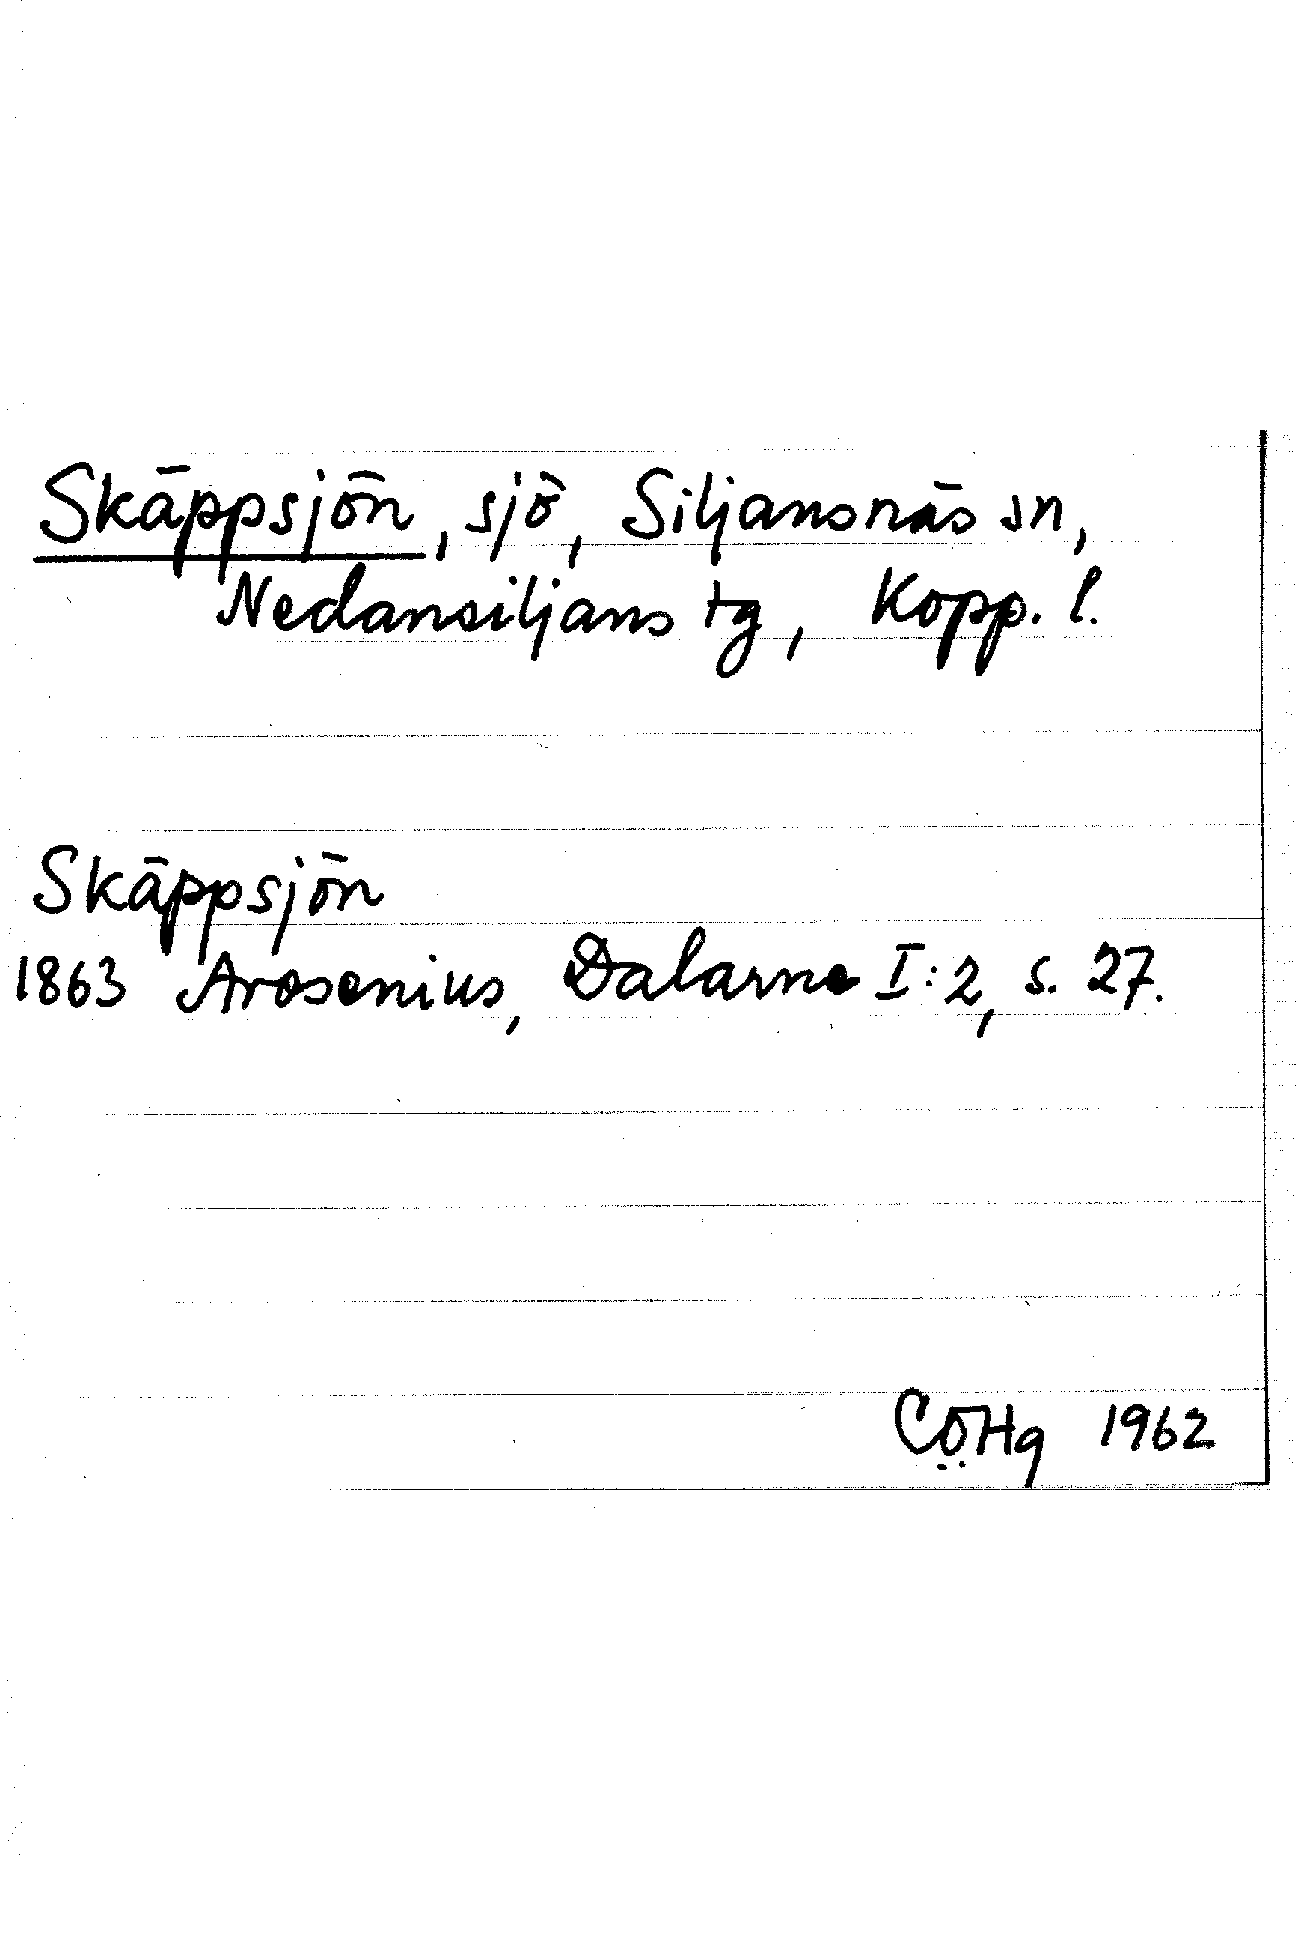 Skäppsjön, sjö, Siljansnäs sn,
Nedansiljans tg, Kopp. l.
Skäppsjön
1863 Arosenius, Dalarne I:2, s. 27.
CÖHg 1962